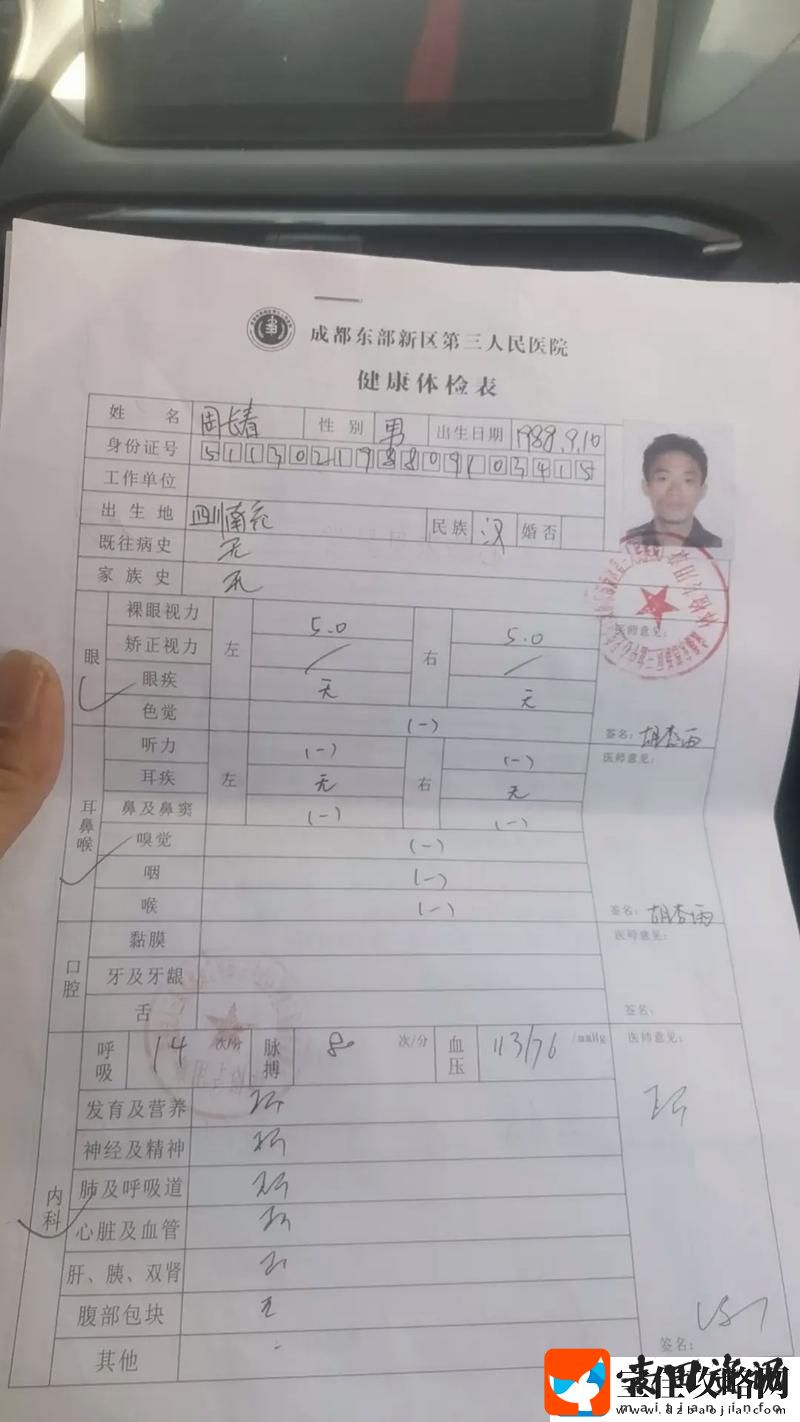 成都东部新区第三人民医院
健康体检表
姓 名 周长春 性 别 男 出生日期 1988.9.10
身份证号 511302198809103415
工作单位
出生地 四川南充 民族 汉 婚否
既往病史 无
家族史 无
眼 裸眼视力 左 5.0 右 5.0 医师意见:
矫正视力 / /
眼疾 无 无
色觉 (-) 签名: 胡杏雨
耳鼻喉 听力 左 (-) 右 (-) 医师意见:
耳疾 无 无
鼻及鼻窦 (-) (-)
嗅觉 (-)
咽 (-)
喉 (-) 签名: 胡杏雨
口腔 黏膜 医师意见:
牙及牙龈
舌 签名:
内科 呼吸 14 次/分 脉搏 80 次/分 血压 113/76 /mmHg 医师意见:
发育及营养
神经及精神
肺及呼吸道
心脏及血管
肝、胰、双肾
腹部包块 无
其他 - 签名:
攻略网
www.dzbaojian.com
maitian.info